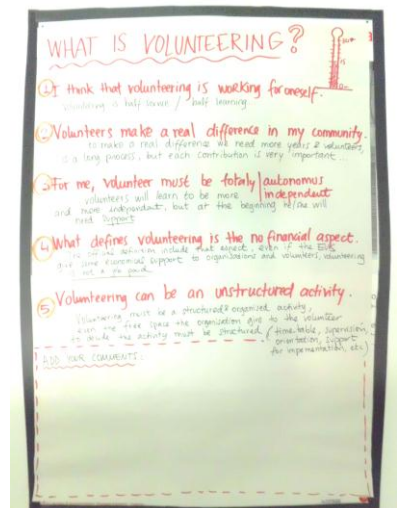 WHAT IS VOLUNTEERING?
1 I think that volunteering is working for oneself.
volunteering is half / half learning
2 Volunteers make a real difference in my community.
to make a real difference we need more years & volunteers,
is a long process, but each contribution is very important ...
3 For me, volunteer must be totally | autonomus
independent
volunteers will learn to be more
and more independant, but at the beginning he/she will
need support
4 What defines volunteering is the no financial aspect.
include that aspect, even if the
give some economical support to organisations and volunteers, volunteering
is not a job paid
5 Volunteering can be an unstructured activity.
Volunteering must be a structured & organised activity,
even the free space the organisation give to the volunteer
to decide the activity must be structured (time-table, supervision,
orientation, support
for implementation, etc)
ADD YOUR COMMENTS: